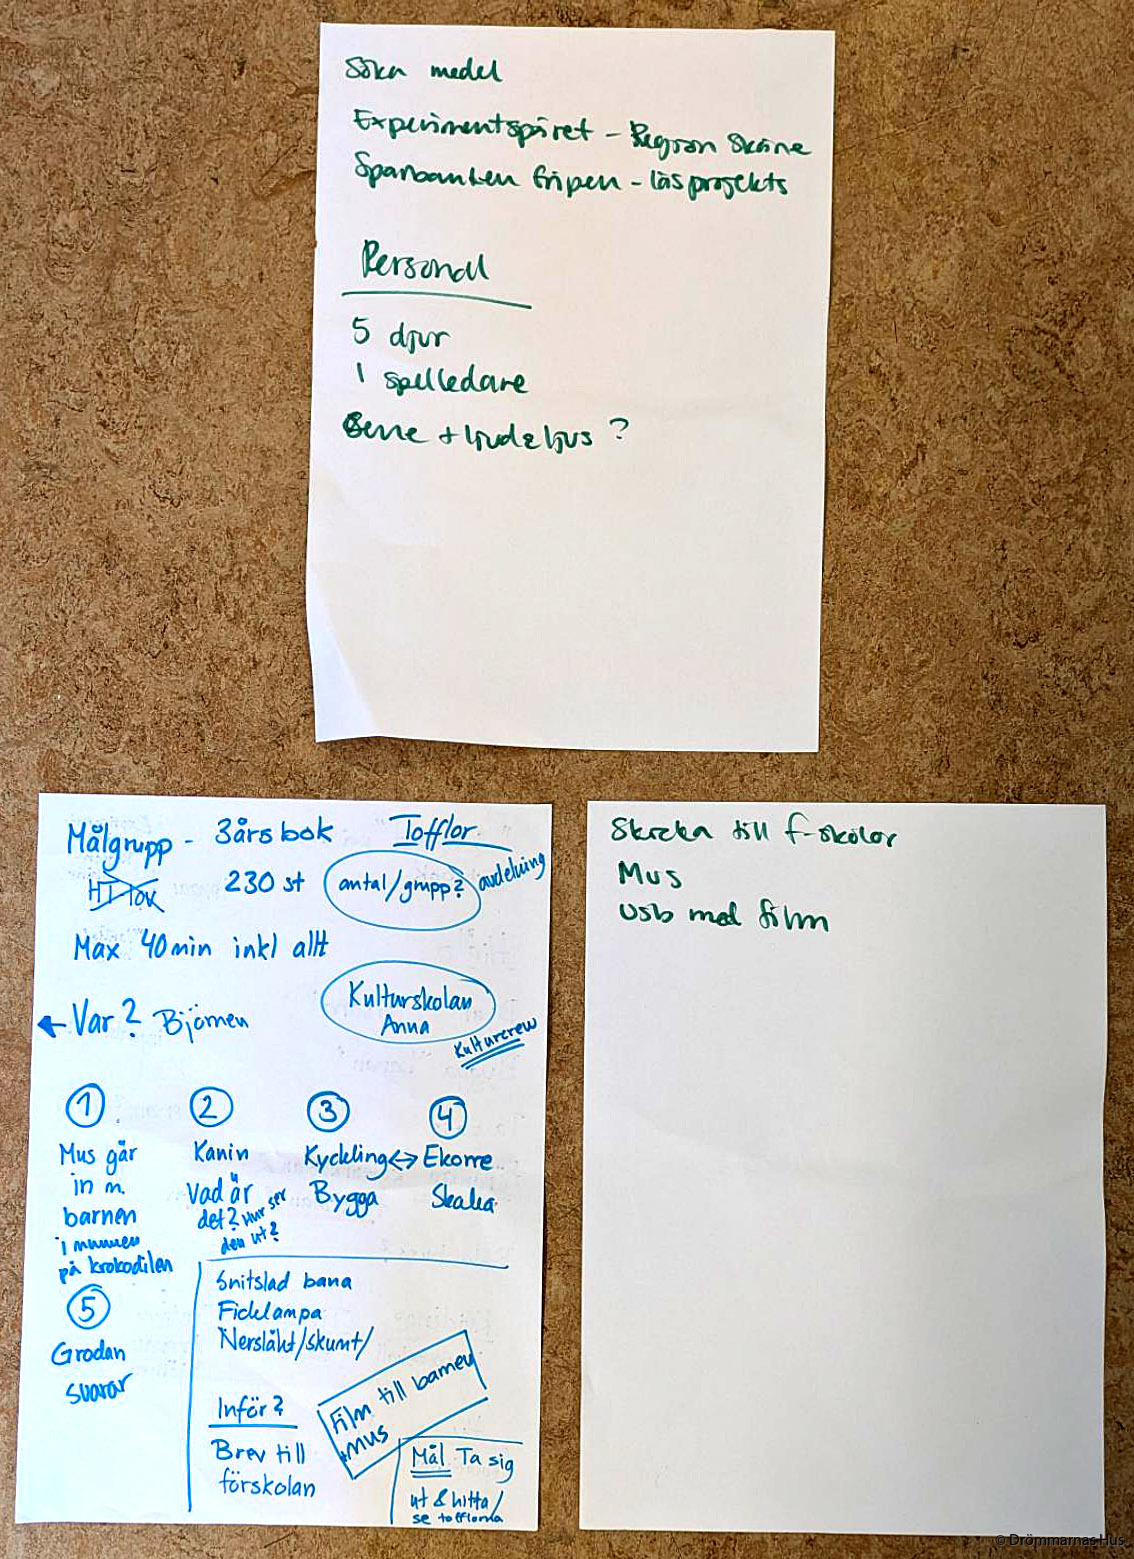 Söka medel
Experimentspåret - Region Skåne
Sparbanken Eripen - läsprojekts
Personal
5 djur
1 spelledare
+ ljud & ljus ?
Målgrupp - 3årsbok
Tofflor
230 st
antal/grupp?
avdelning
Max 40min inkl allt
Kulturskolan
Anna
Kulturcrew
Var? Björnen
1
Mus går
in m.
barnen
i munnen
på krokodilen
2
Kanin
Vad är
det? Hur ser
den ut?
3
Kyckling ↔
Bygga
4
Ekorre
Skaka
5
Grodan
svarar
Snitslad bana
Ficklampa
Nersläkt/skumt/
Inför?
Brev till
förskolan
Film till barnen
+mus
Mål Ta sig
ut & hitta/
se tofflorna
Skicka till f-skolor
Mus
Usb med film
© Drömmarnas Hus